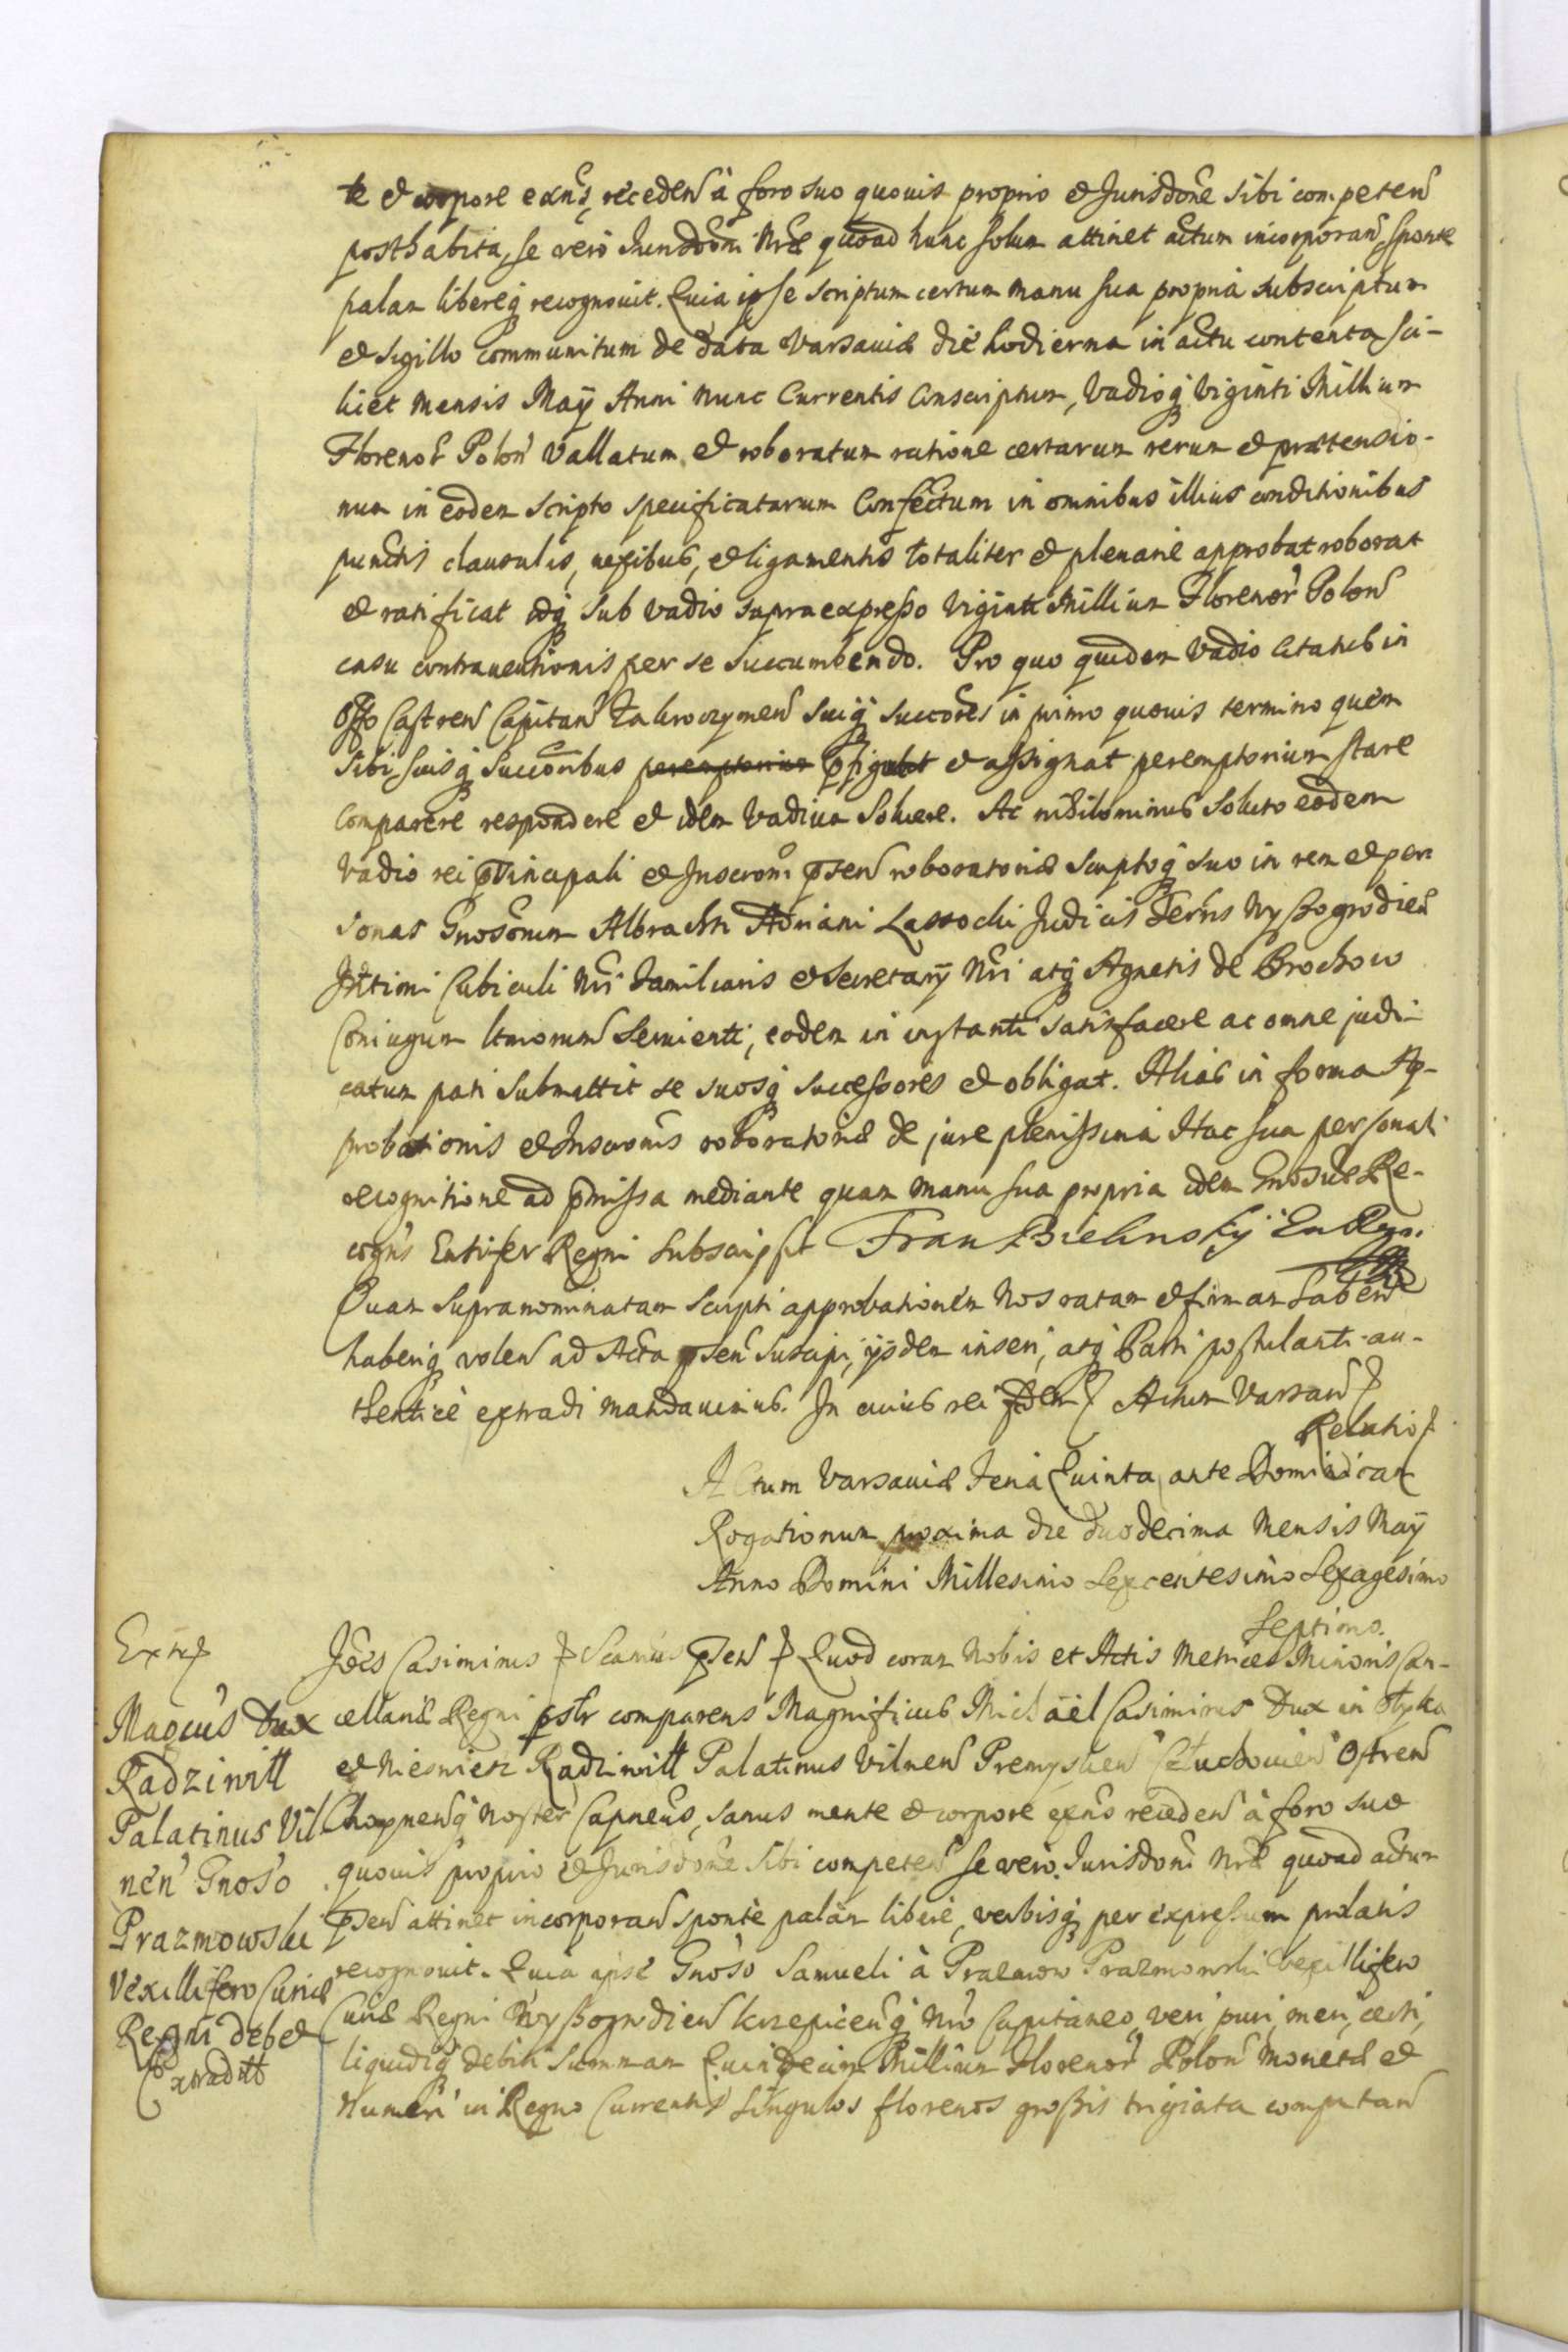 te et corpore exns, receden à foro suo quouis proprio et Jurisdone sibi competen
posthabita, se verò Jurisdoni Nrae quoad hunc solum attinet actum incorporan, sponte
palam libereq recognouit. Quia ipse scriptum certum manu sua propria subscriptum
et sigillo communitum de data Varsauiae die hodierna in actu contenta sci-
licet mensis Maij Anni nunc Currentis Conscriptum, Vadioq Viginti Millium
Florenor Polon Vallatum et roboratum ratione certarum rerum et praetensio-
num in eodem scripto specificatarum Confectum in omnibus illius conditionibus
punctis clausulis, nexibus, et ligamentis totaliter et plenarie approbat roborat
et ratificat idq sub vadio supraexpresso Viginti Millium Florenor Polon
casu contrauentionis per se succumbendo. Pro quo quidem Vadio Citatus in
Offo Castren Capitan Zakroczymen suiq succores in primo quouis termino quem
sibi suisq succoribus peremptorium pfigit et assignat peremptorium stare
comparere respondere et idem Vadium Soluere. Ac nihilominus soluto eodem
Vadio rei principali et Inscroni psen roboratoriae scriptoq suo in rem et per
sonas Gnosorum Albrachti Adriani Lassocki Judicis Terris Wyszogrodien
Intimi Cubiculi Nri Familiaris et Secretarij Nri atq Agnetis de Brochow
Coniugum ltmorum seruienti, eodem in instanti satisfacere ac omne judi-
catum pati submittit se suosq successores et obligat. Alias in forma Ap-
probationis et Inscronis roboratoriae de jure plenissima Hac sua personali
recognitione ad pmissa mediante quam manu sua propria idem Gnosus Re-
cogns Ensifer Regni subscripsit Fran Bielinsky En Regn.
Quam supranominatam scripti approbationem Nos ratam et firmam haben
haberiq volen ad Acta psen suscipi, ijsdem inseri, atq Parti postulanti au-
thentice extradi mandauimus. In cuius rei fidem Actum Varsau
Relatio
Actum Varsauiae Feria Quinta ante Dominicam
Rogationum proxima die duodecima Mensis Maij
Anno Domini Millesimo Sexcentesimo Sexagesimo
Septimo.
Joes Casimirus Scamus psen Quod coram Nobis et Actis Metrices Minoris Can-
cellariae Regni pslr comparens Magnificus Michäel Casimirus Dux in Olyka
et Nieswiesz Radziwill Palatinus Vilnen Premyslien Czluchouien Ostren
Choynenq noster Capneus, sanus mente et corpore exns receden à foro suo
quouis proprio et Jurisdone sibi competen se verò Jurisdoni Nrae quoad actum
psen attinet incorporan sponte palàm liberè, verbisq per expressum prolatis
recognouit. Quia ipse Gnoso Samueli à Prazmow Prazmowski Vexillifero
Curiae Regni Wyszogrodien Krzepicenq Nro Capitaneo, veri puri, meri, certi,
liquidiq debiti summam Quindecim Millium Florenor Polon Monetae et
numeri in Regno Currentis singulos florenos grossis triginta computan
Magcus Dux
Radziwill
Palatinus Vil-
nen Gnoso
Prazmowski
Vexillifero Curiae
Regni debet
Extradtt